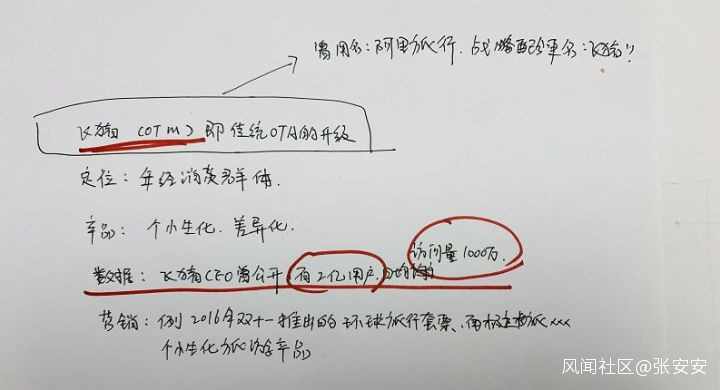 曾用名:阿里旅行. 战略配合军名:飞猪?
飞猪 (OTM) 即传统OTA的升级
定位:年轻消费群体.
产品:个性化. 差异化.
访问量1000万.
数据:飞猪CEO曾公开,有2亿用户,日均
营销:例2016年双十一推出的环球旅行套票、南极主构旅xxx
个性化旅游产品
风闻社区@张安安